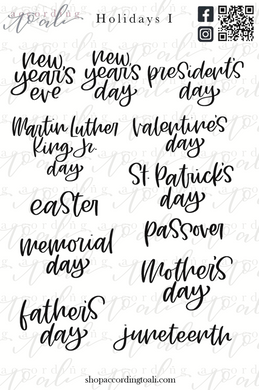 according
to ali
Holidays I
new
year's
eve
new
year's
day
president's
day
Martin Luther
King Jr.
day
valentine's
day
St. Patrick's
day
easter
passover
memorial
day
Mother's
day
father's
day
juneteenth
shopaccordingtoali.com